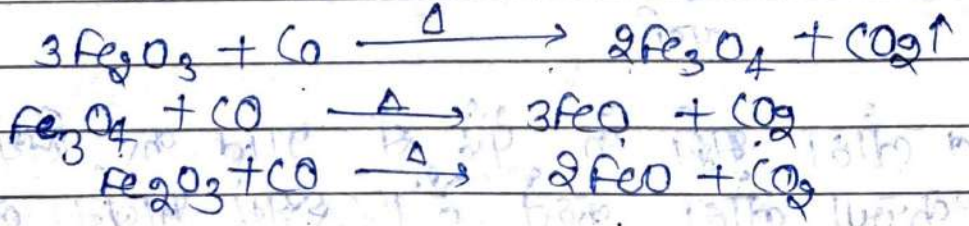 3Fe₂O₃ + CO —Δ→ 2Fe₃O₄ + CO₂↑
Fe₃O₄ + CO —Δ→ 3FeO + CO₂
Fe₂O₃ + CO —Δ→ 2FeO + CO₂